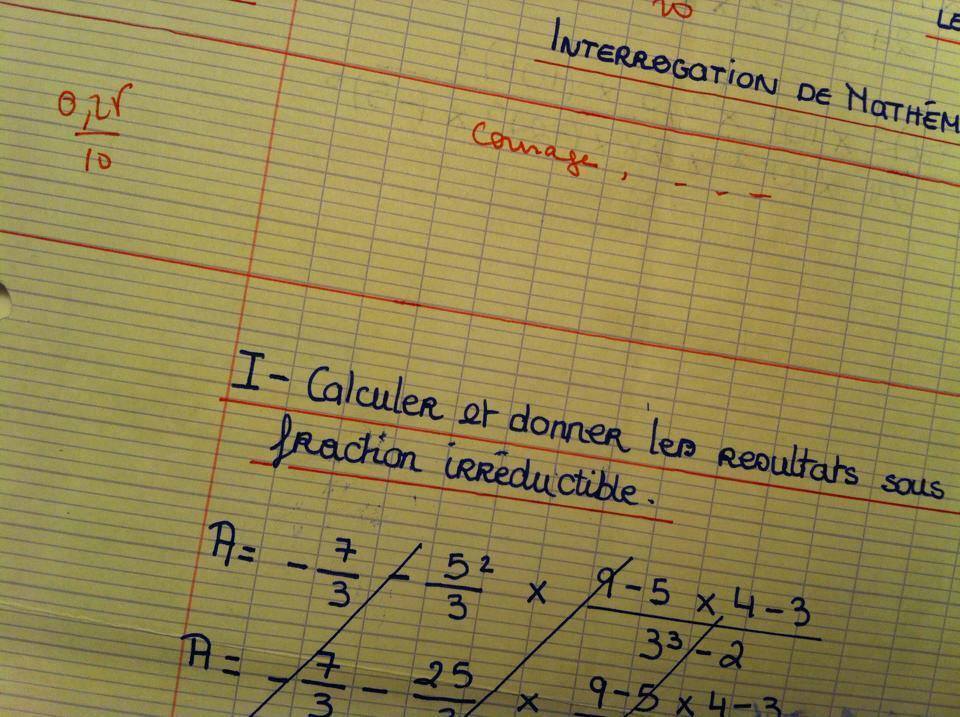 20
LE
INTERROGATION DE MATHÉM
0,25
10
Courage, - - -
I - Calculer et donner les resultats sous
fraction irréductible.
A = - 7/3 - 5²/3 × (9 - 5 × 4 - 3)/(3³ - 2)
A = - 7/3 - 25/3 × 9 - 5 × 4 - 3